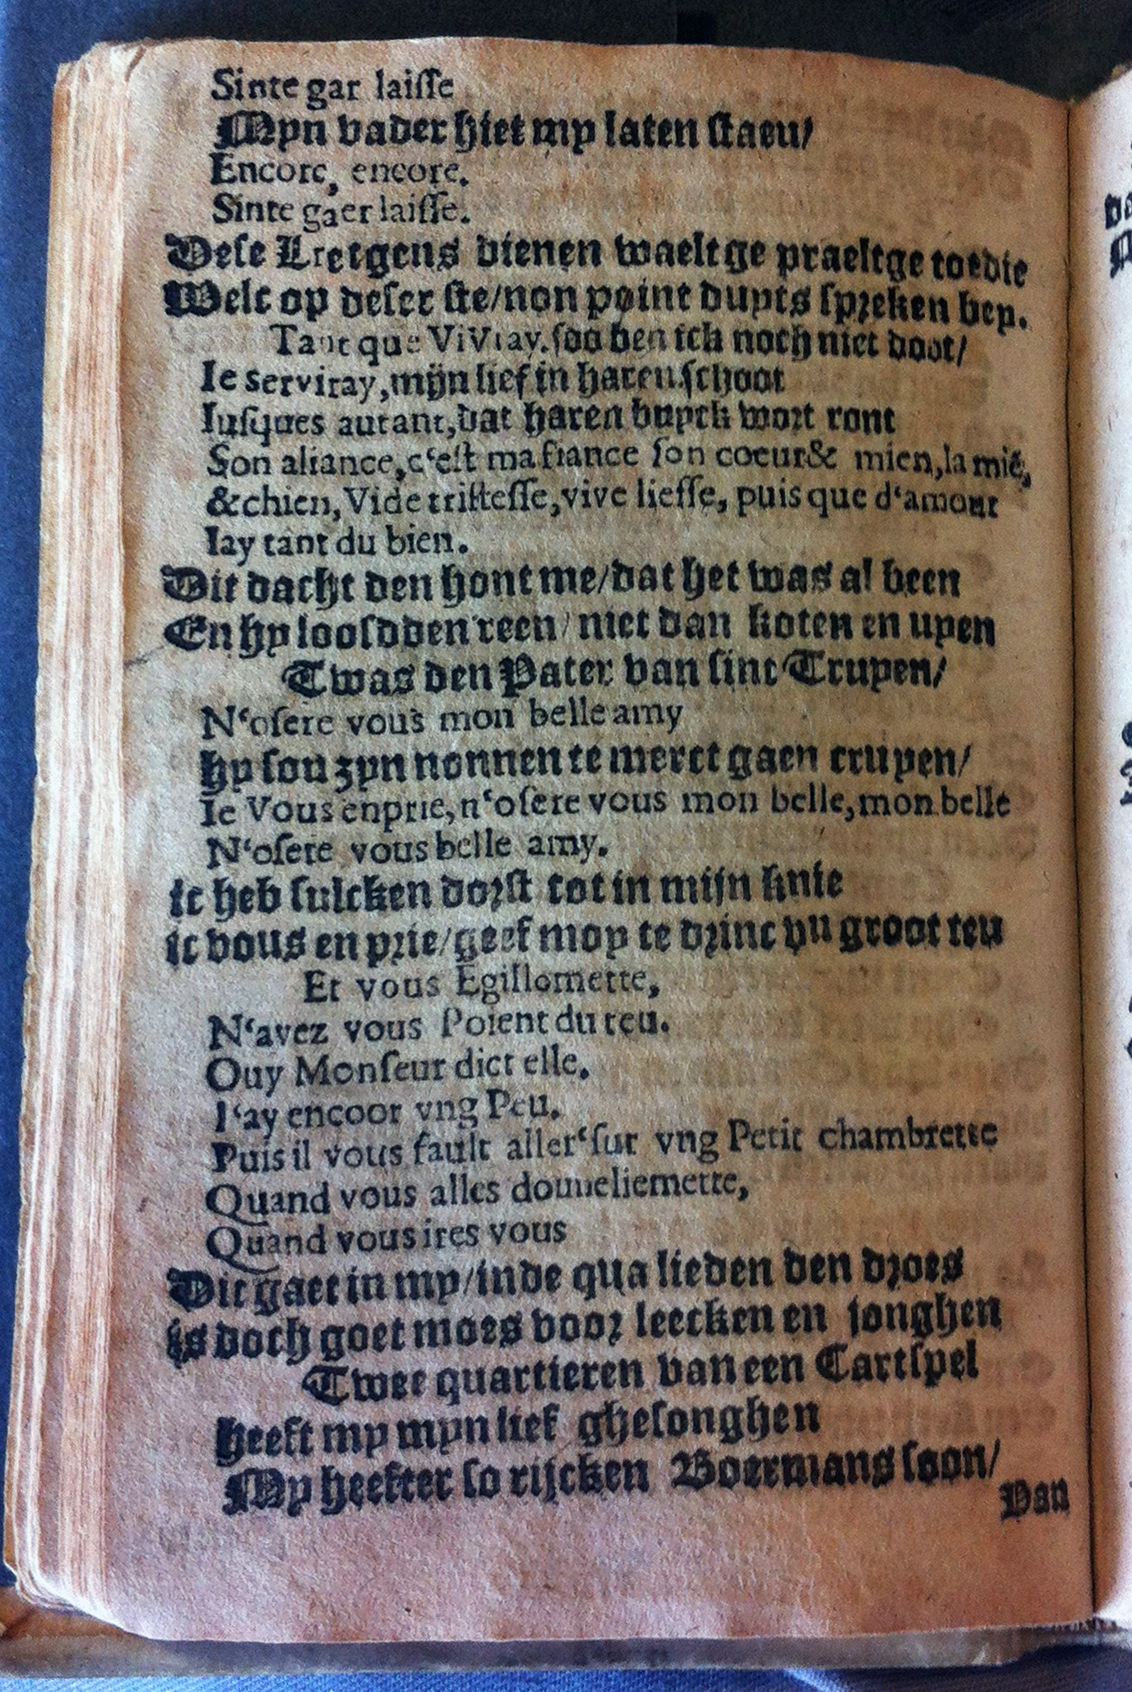 Sinte gar laisse
Myn vader hiet my laten staen/
Encore, encore.
Sinte gaer laisse.
Dese Lietgens dienen waeltge praeltge toedie
Welc op deser ste/non point duyts spreken bey.
Tant que ViVray. soo ben ick noch niet doot/
Ie serviray, mijn lief in haren schoot
Iusques autant, dat haren buyck wort ront
Son aliance, c‘est ma fiance son coeur& mien, la mié,
& chien, Vide tristesse, vive liesse, puis que d‘amour
Iay tant du bien.
Dit dacht den hont me/dat het was al been
En hy loosdden teen/niet dan koten en uyen
Twas den Pater van sint Truyen/
N‘osere vous mon belle amy
hy sou zyn nonnen te merct gaen cruyen/
Ie Vous enprie, n‘osere vous mon belle, mon belle
N‘osere vous belle amy.
ic heb sulcken dorst tot in mijn knie
ic vous en prie/geef moy te drinc vu groot teu
Et vous Egillomette,
N‘avez vous Poient du teu.
Ouy Monseur dict elle.
I‘ay encoor vng Peu.
Puis il vous fault aller‘sur vng Petit chambrette
Quand vous alles donneliemette,
Quand vous ires vous
Dit gaet in my/inde qua lieden den droes
is doch goet moes voor leecken en jonghen
Twee quartieren van een Cartspel
heeft my myn lief ghesonghen
My heefter so rijcken Boermans soon/
Van